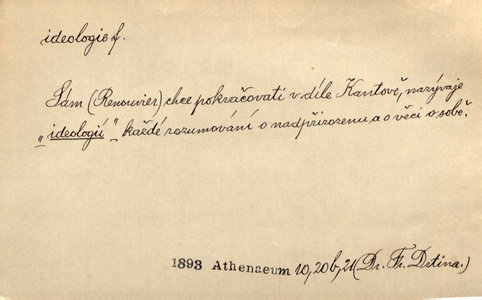 ideologie f.
Sám (Renouvier) chce pokračovati v díle Kantově, nazývaje
„ideologií" každé rozumování o nadpřirozenu a o věci o sobě.
1893 Athenaeum 10, 20b, 21 (Dr. Fr. Drtina.)